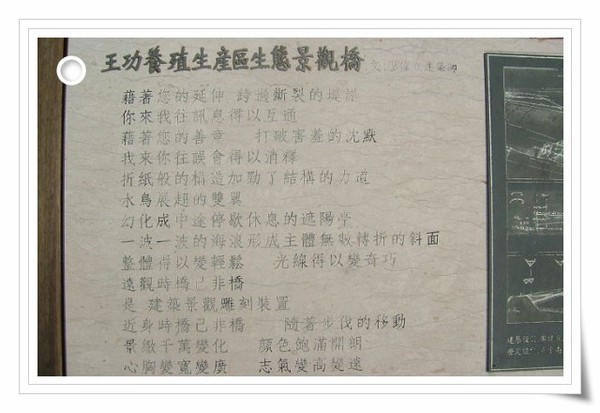 王功養殖生產區生態景觀橋
藉著您的延伸 跨過斷裂的堤岸
你來我往訊息得以互通
藉著您的善意 打破害羞的沈默
我來你往誤會得以消釋
折紙般的構造加勁了結構的力道
水鳥展翅的雙翼
幻化成中途停歇休息的遮陽亭
一波一波的海浪形成主體無數轉折的斜面
整體得以變輕鬆 光線得以變奇巧
遠觀時橋已非橋
是 建築景觀雕刻裝置
近身時橋已非橋 隨著步伐的移動
景緻千萬變化 顏色飽滿開朗
心胸變寬變廣 志氣變高變遠